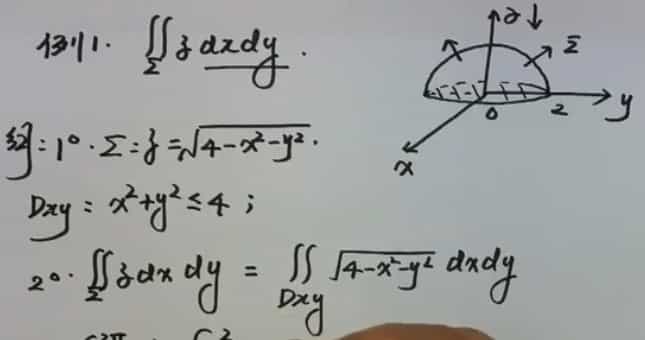 例1. ∬_Σ z dxdy.
解: 1°. Σ: z = √(4-x²-y²).
Dxy: x²+y² ≤ 4;
2°. ∬_Σ z dx dy = ∬_Dxy √(4-x²-y²) dxdy
z ↓
Σ
0 2 y
x